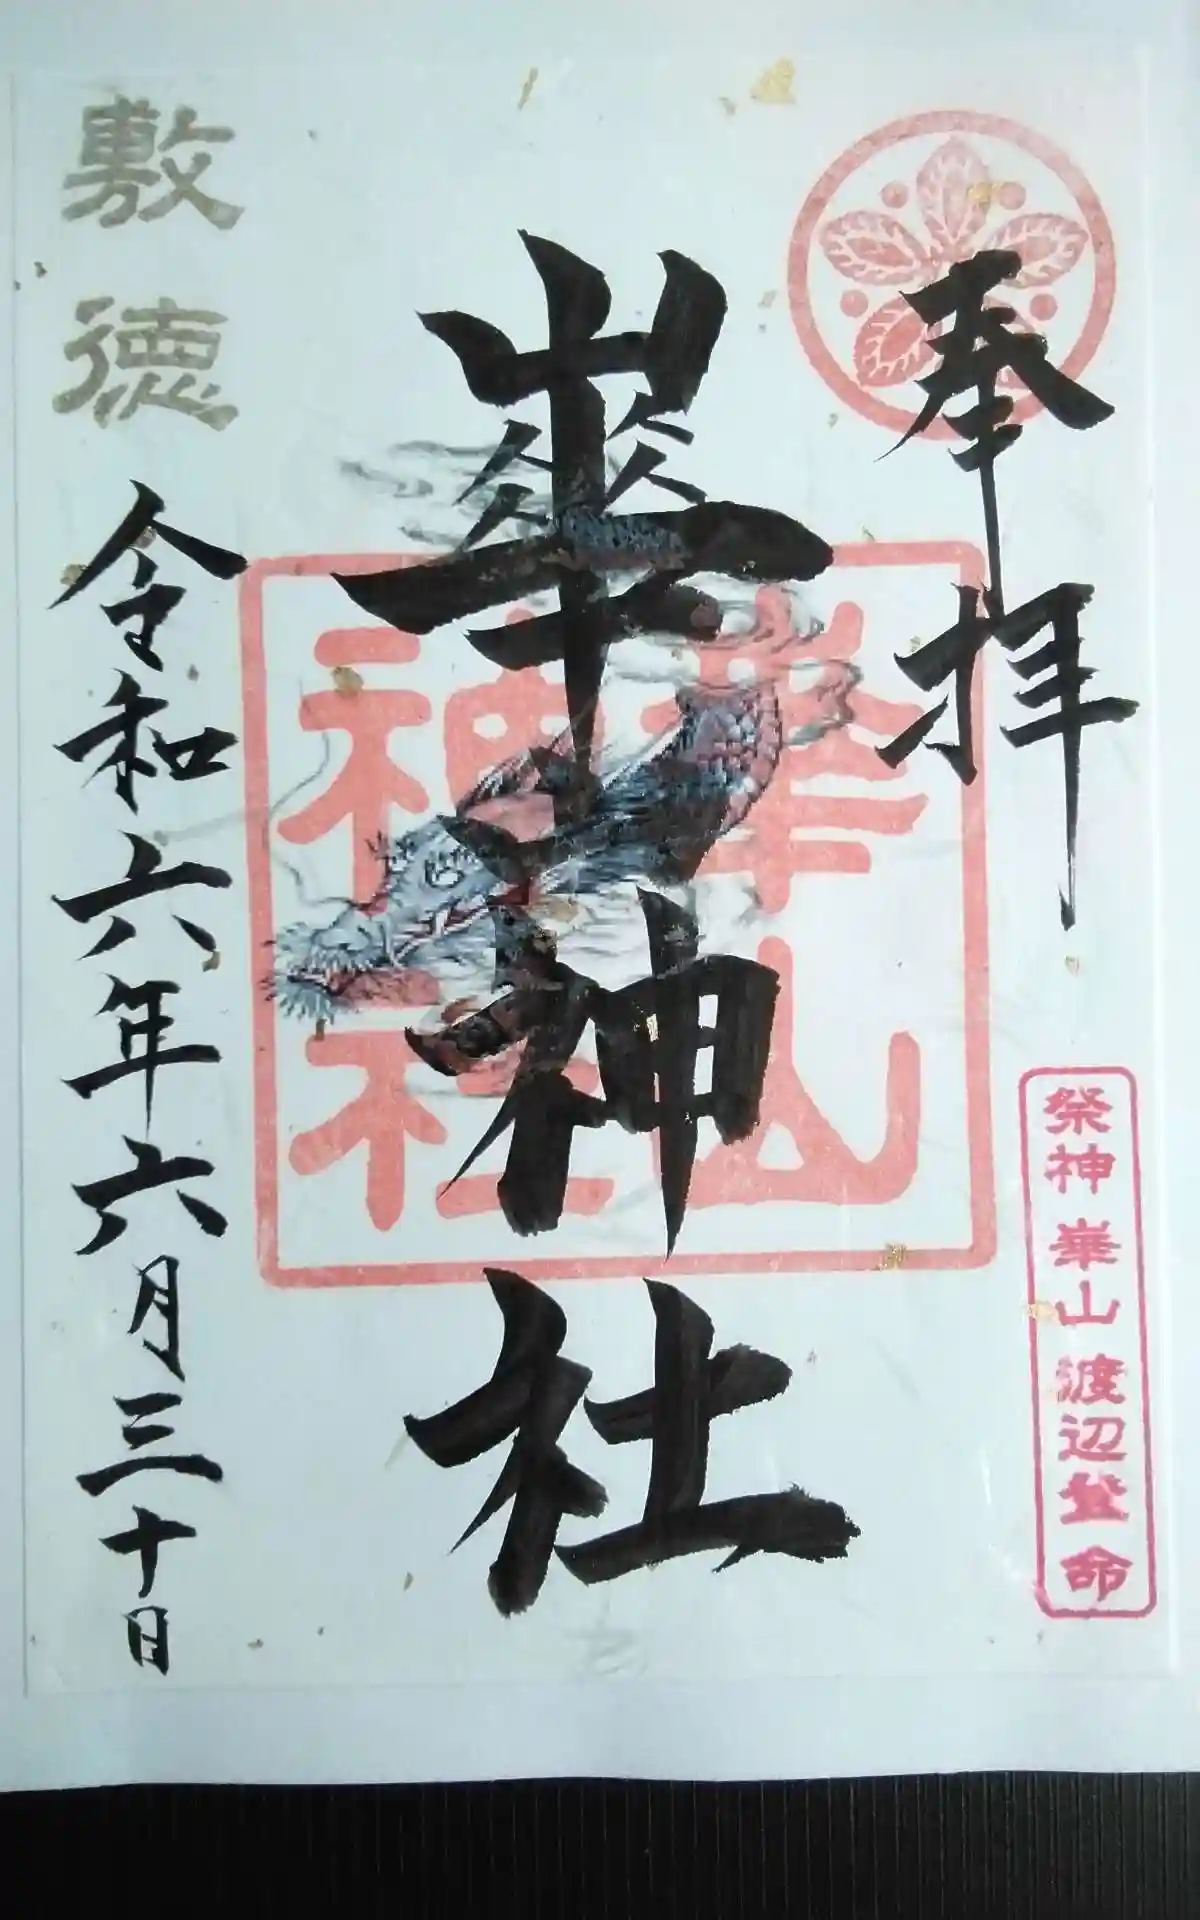 奉拝
祭神 崋山 渡辺登 命
崋山神社
崋山
神社
敷徳
令和六年六月三十日